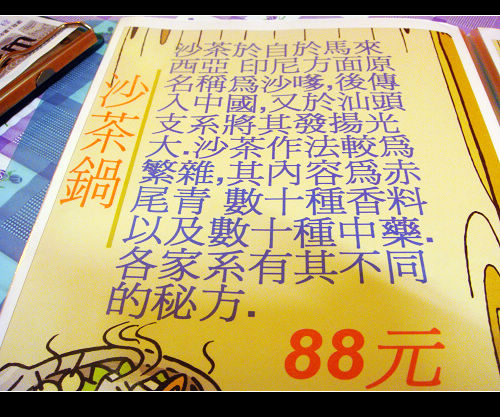 沙茶鍋
沙茶於自於馬來
西亞 印尼方面原
名稱為沙嗲,後傳
入中國,又於汕頭
支系將其發揚光
大.沙茶作法較為
繁雜,其內容為赤
尾青 數十種香料
以及數十種中藥.
各家系有其不同
的秘方.
88元